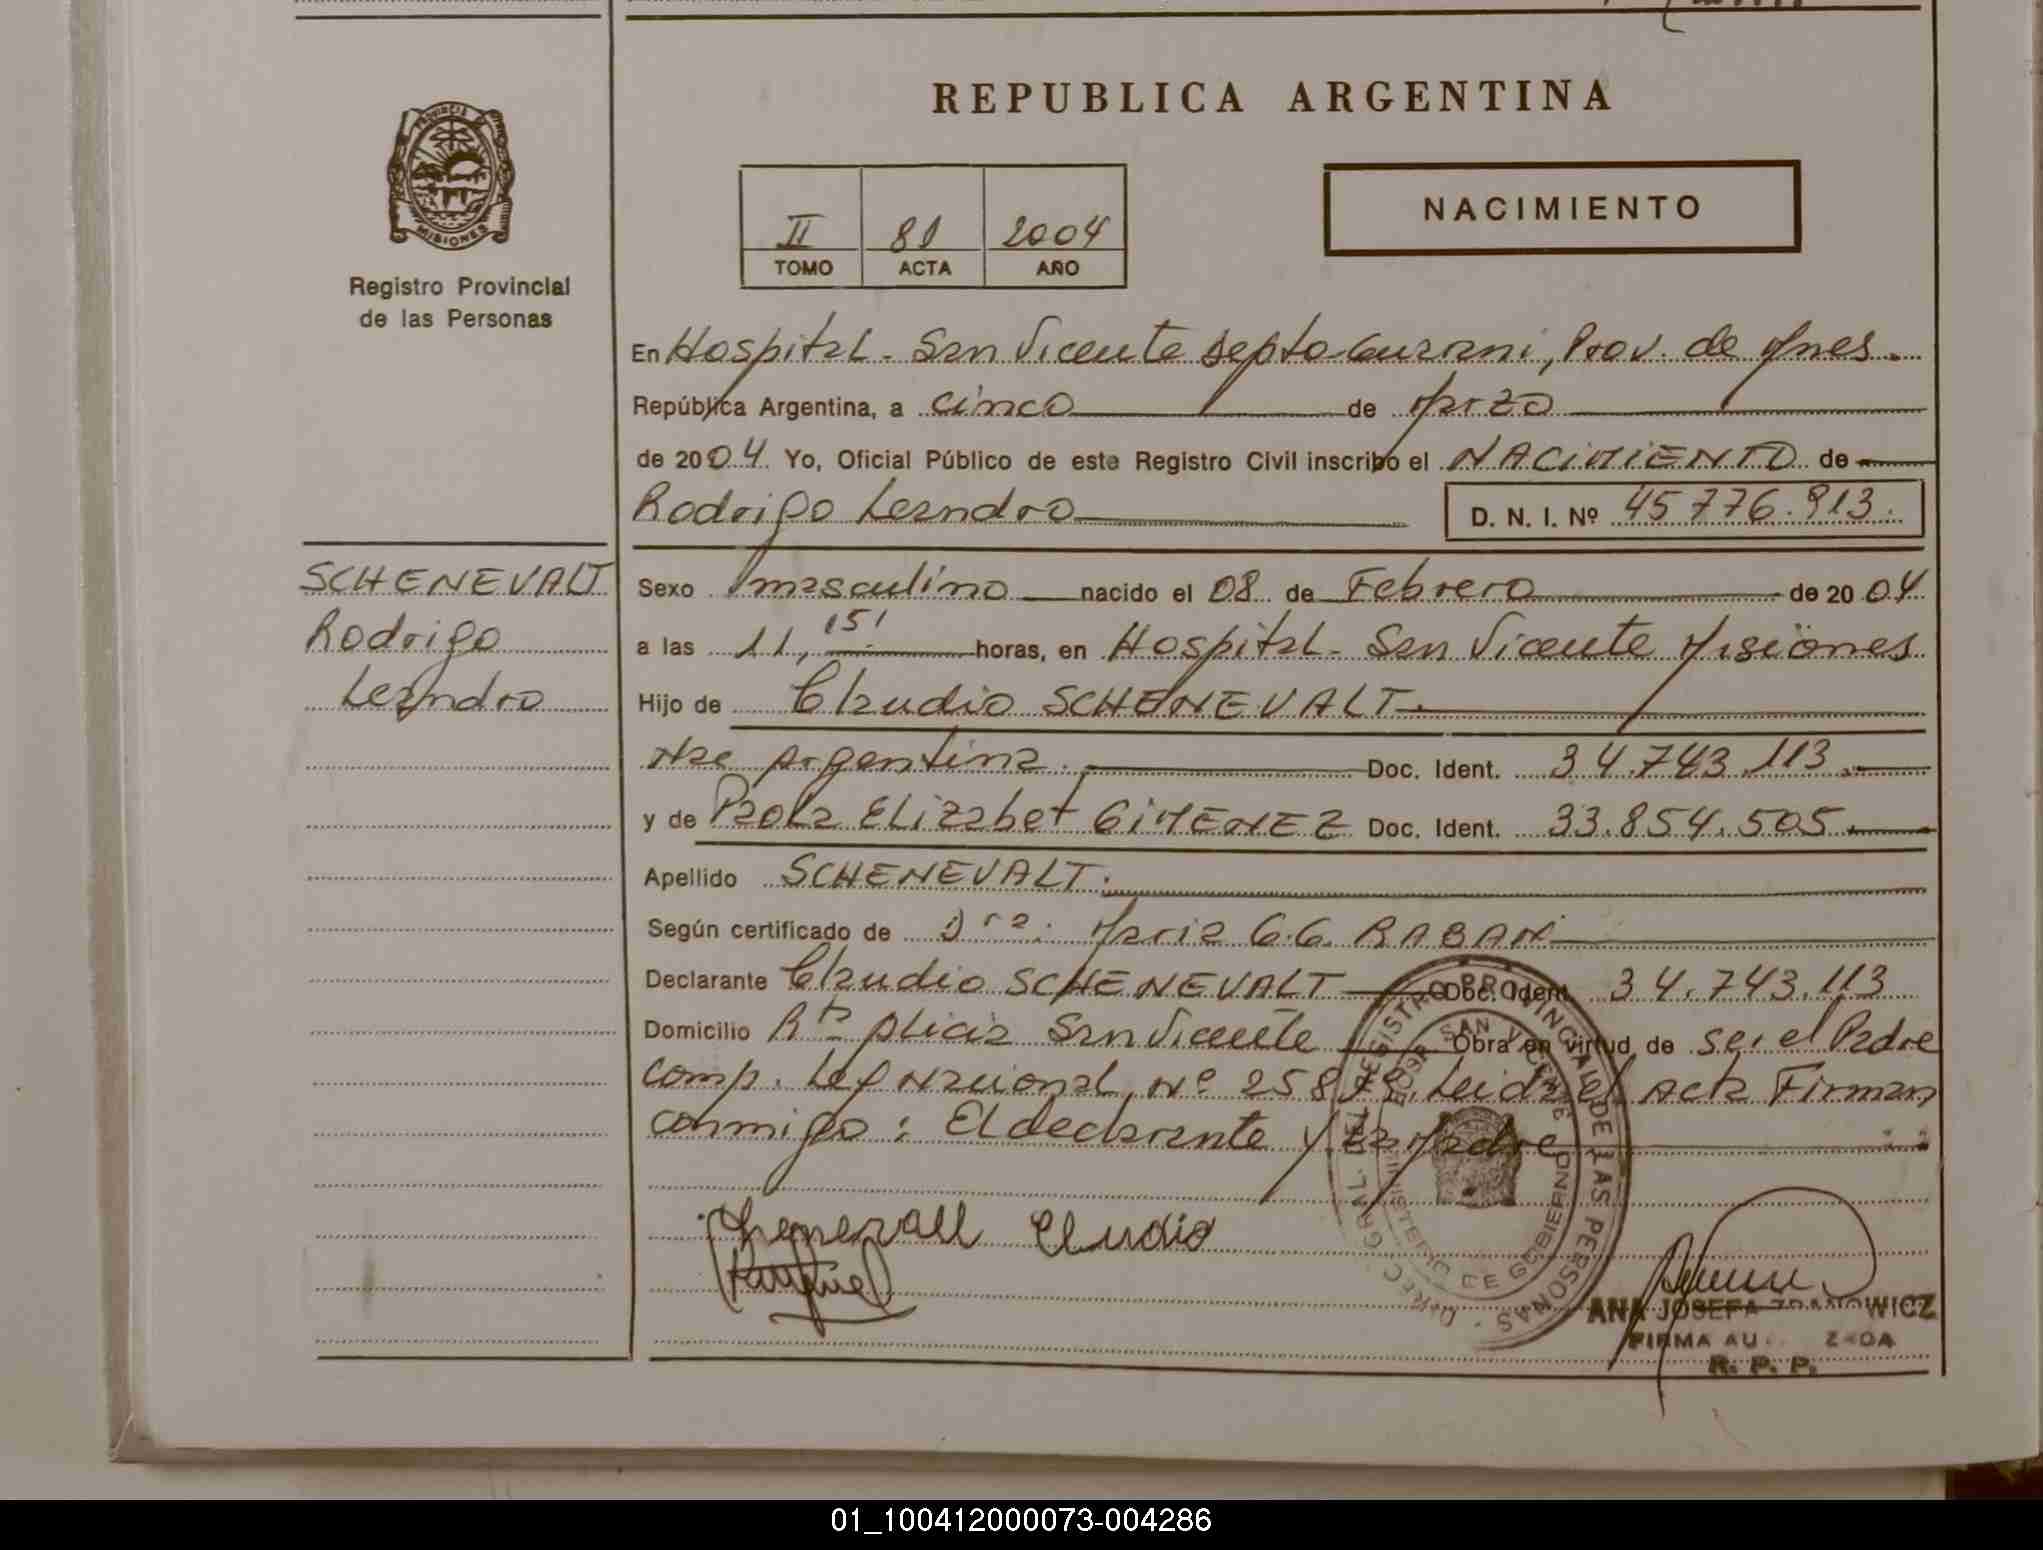 REPUBLICA ARGENTINA
PROVINCIA DE
MISIONES
Registro Provincial
de las Personas
II 81 2004
TOMO ACTA AÑO
NACIMIENTO
En Hospital - San Vicente Depto Guarani, Prov. de Mnes.
República Argentina, a cinco de Marzo
de 2004. Yo, Oficial Público de este Registro Civil inscribo el NACIMIENTO de
Rodrigo Leandro D. N. I. Nº 45776.913.
SCHENEVALT
Rodrigo
Leandro
Sexo masculino nacido el 08 de Febrero de 2004
a las 11,15' horas, en Hospital - San Vicente Misiones
Hijo de Claudio SCHENEVALT.
Nac Argentina. Doc. Ident. 34.743.113.
y de Paola Elizabet GIMENEZ Doc. Ident. 33.854.505.
Apellido SCHENEVALT.
Según certificado de Dra. Maria G.G. RABAN
Declarante Claudio SCHENEVALT Doc. Ident. 34.743.113
Domicilio Rta Alicia San Vicente Obra en virtud de ser el Padre
Comp. Ley Nacional Nº 258 Leida el Acta Firman
conmigo: El declarante y La Madre
Claudio
REGISTRO PROVINCIAL DE LAS PERSONAS
SAN VICENTE
MINISTERIO DE GOBIERNO
DIREC. GRAL. DEL
ANA JOSEFA
FIRMA
R. P. P.
01_100412000073-004286